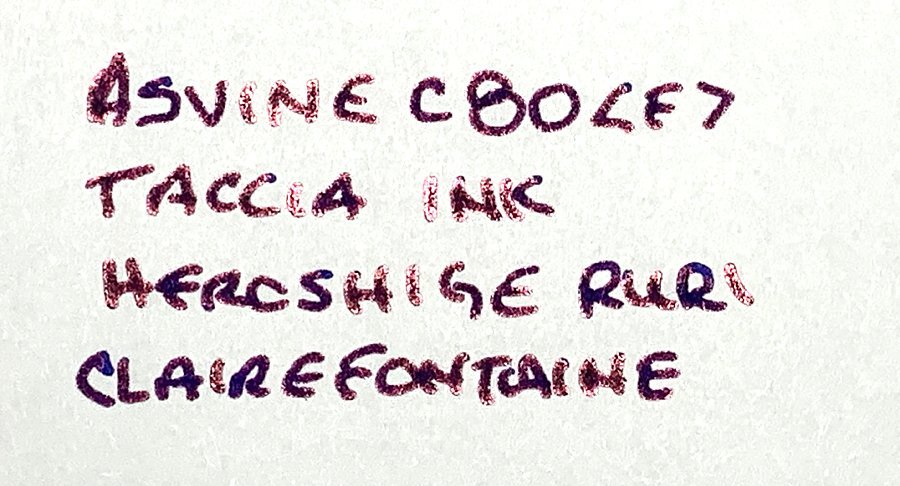 ASVINE C80 <F>
TACCIA INK
HEROSHIGE RURI
CLAIREFONTAINE